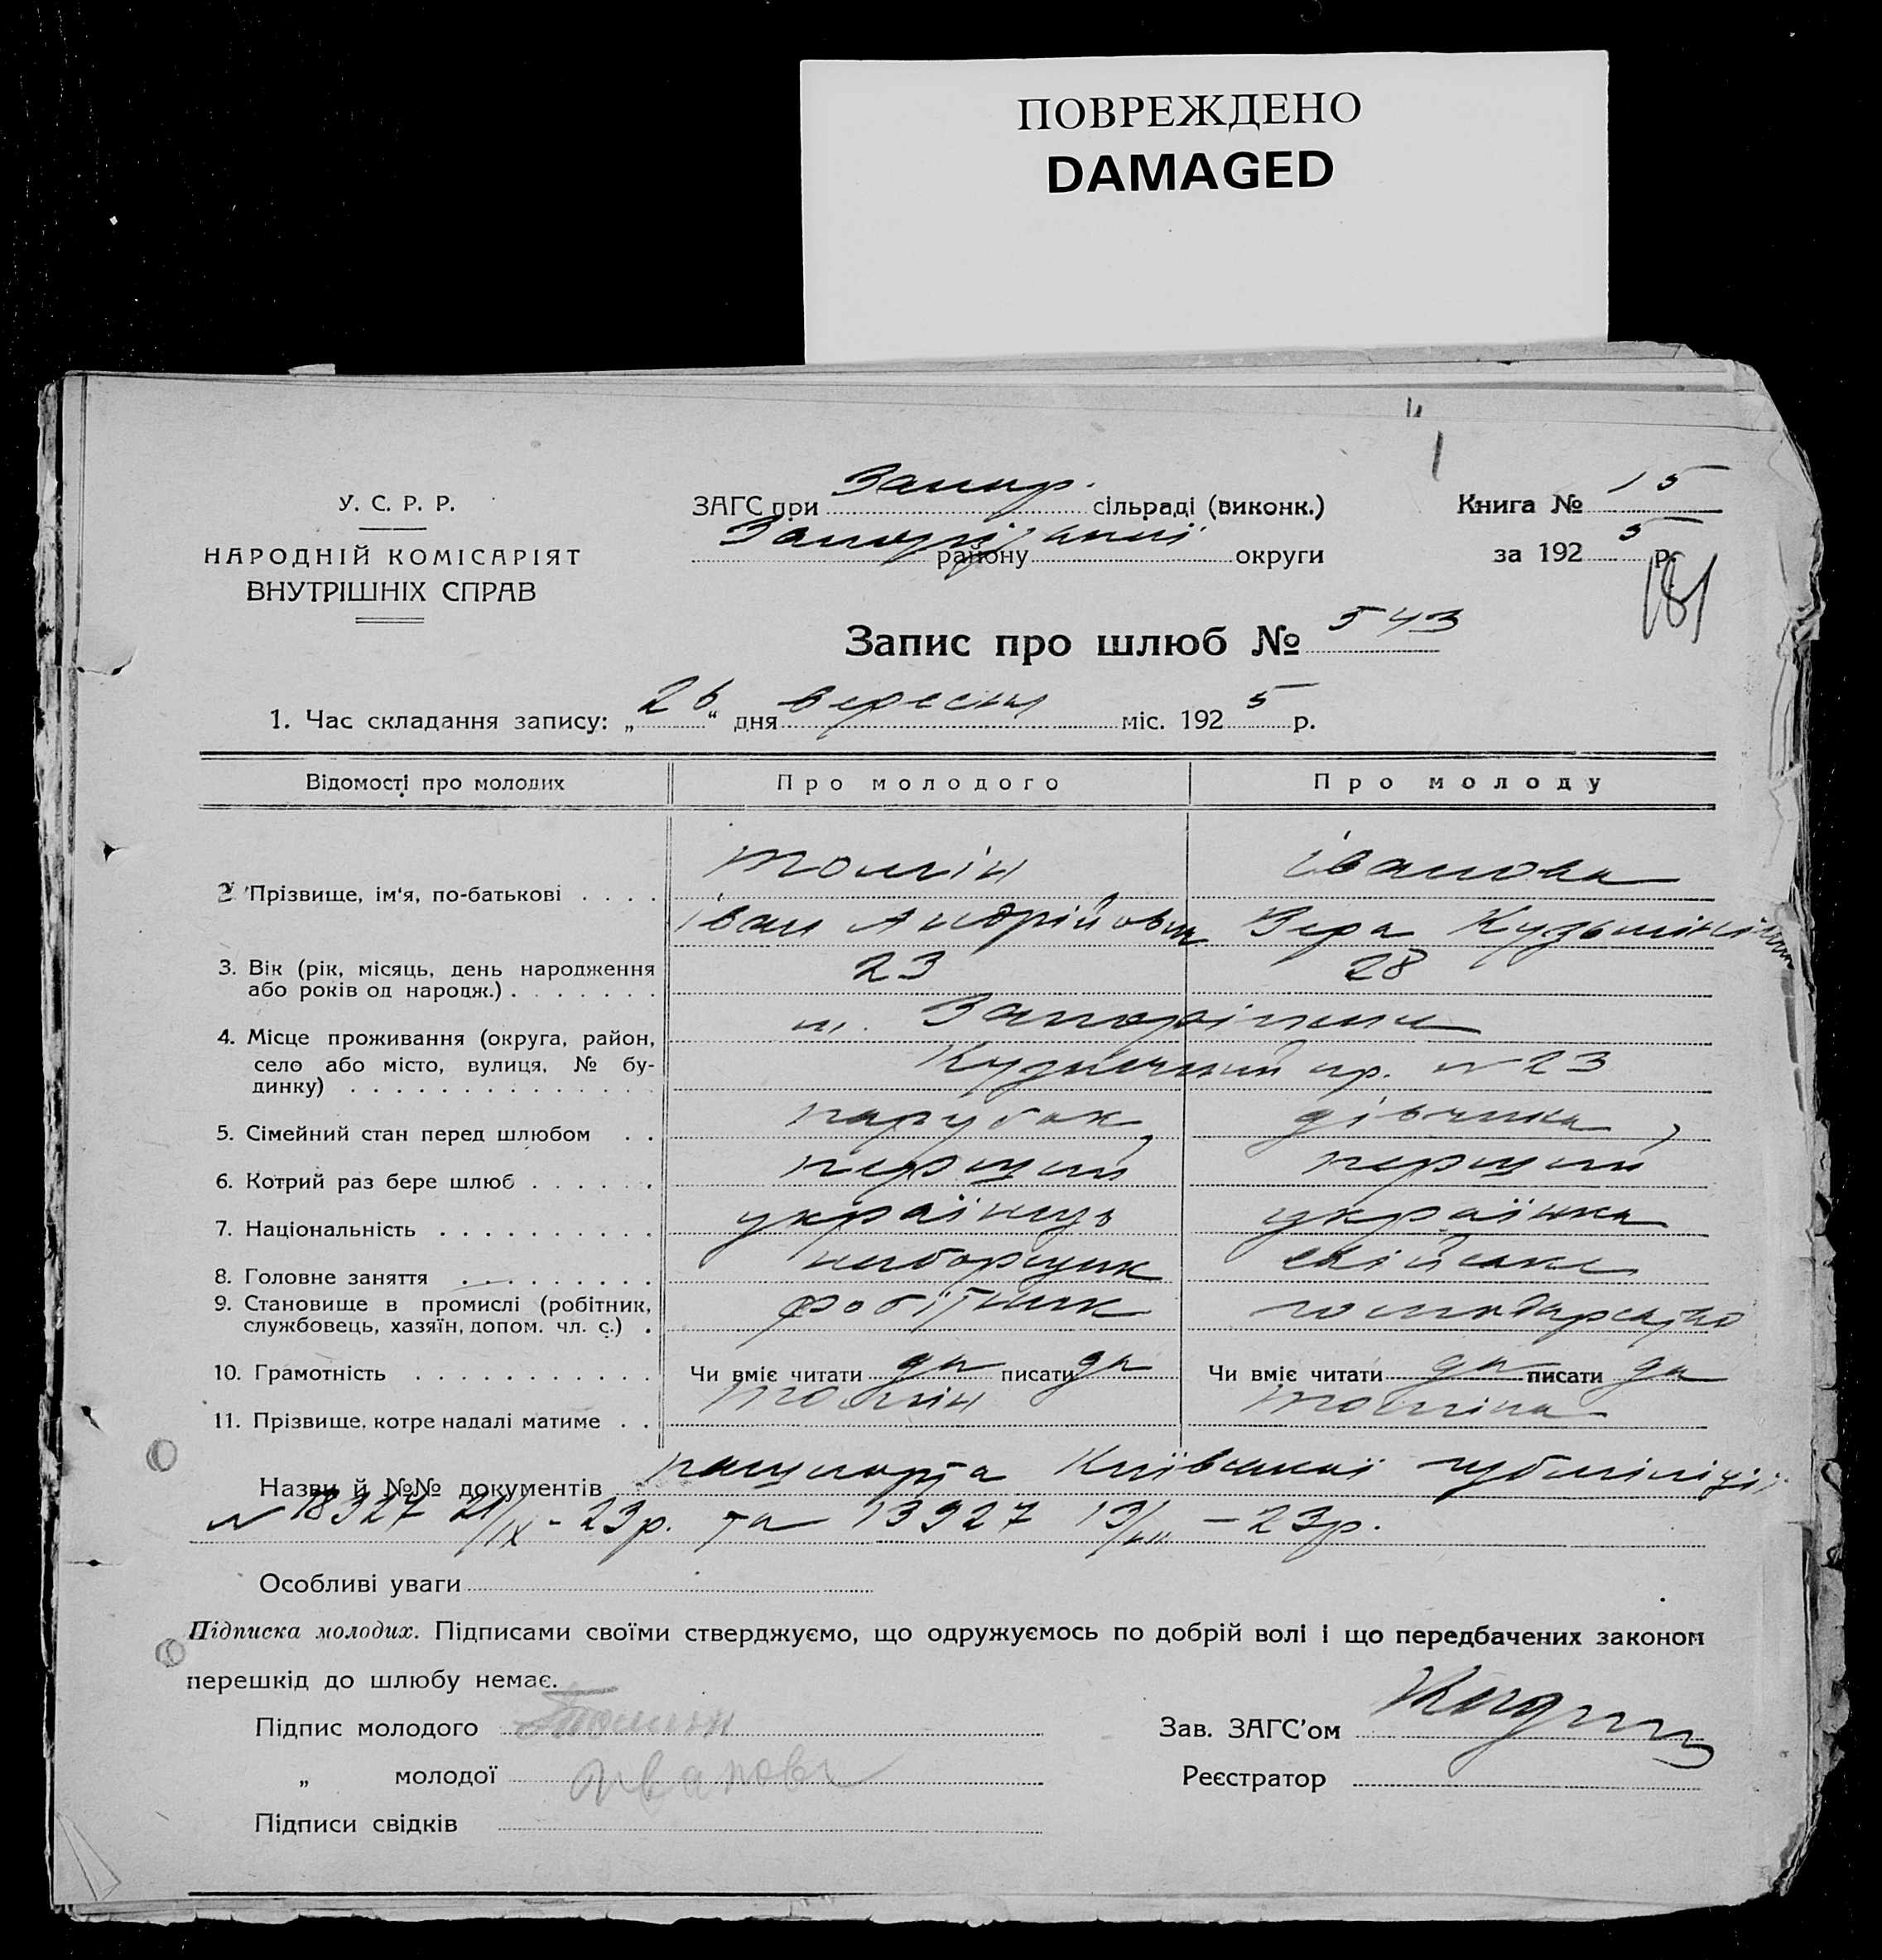 ПОВРЕЖДЕНО
DAMAGED
У. С. Р. Р.
НАРОДНІЙ КОМІСАРІЯТ
ВНУТРІШНІХ СПРАВ
ЗАГС при Запор. сільраді (виконк.)
Запорізької району округи
Книга № 15
за 1925 р.
181
Запис про шлюб № 543
1. Час складання запису: „26“ дня вересня міс. 1925 р.
Відомості про молодих Про молодого Про молоду
2. Прізвище, ім‘я, по-батькові . . . . Томін Іванова
Іван Андрійович Вера Кузьмінічна
3. Вік (рік, місяць, день народження
або років од народж.) . . . . . . . 23 28
4. Місце проживання (округа, район,
село або місто, вулиця, № бу-
динку) . . . . . . . . . . . . . .
м. Запоріжжя
Кузнечний пр. № 23
5. Сімейний стан перед шлюбом . . парубок, дівчина,
6. Котрий раз бере шлюб . . . . . . перщий перщий
7. Національність . . . . . . . . . . українець українка
8. Головне заняття . . . . . . . . . наборщик хатнє
9. Становище в промислі (робітник,
службовець, хазяїн, допом. чл. с.) . робітник господарство
10. Грамотність . . . . . . . . . . . Чи вміє читати да писати да Чи вміє читати да писати да
11. Прізвище, котре надалі матиме . . Томін Томіна
Назви й №№ документів пащпорта Київської губміліції
№ 18327 21/IX - 23р. та 13927 13/VII - 23р.
Особливі уваги
Підписка молодих. Підписами своїми стверджуємо, що одружуємось по добрій волі і що передбачених законом
перешкід до шлюбу немає.
Підпис молодого Томин
„ молодої Иванова
Підписи свідків
Зав. ЗАГС’ом
Реєстратор